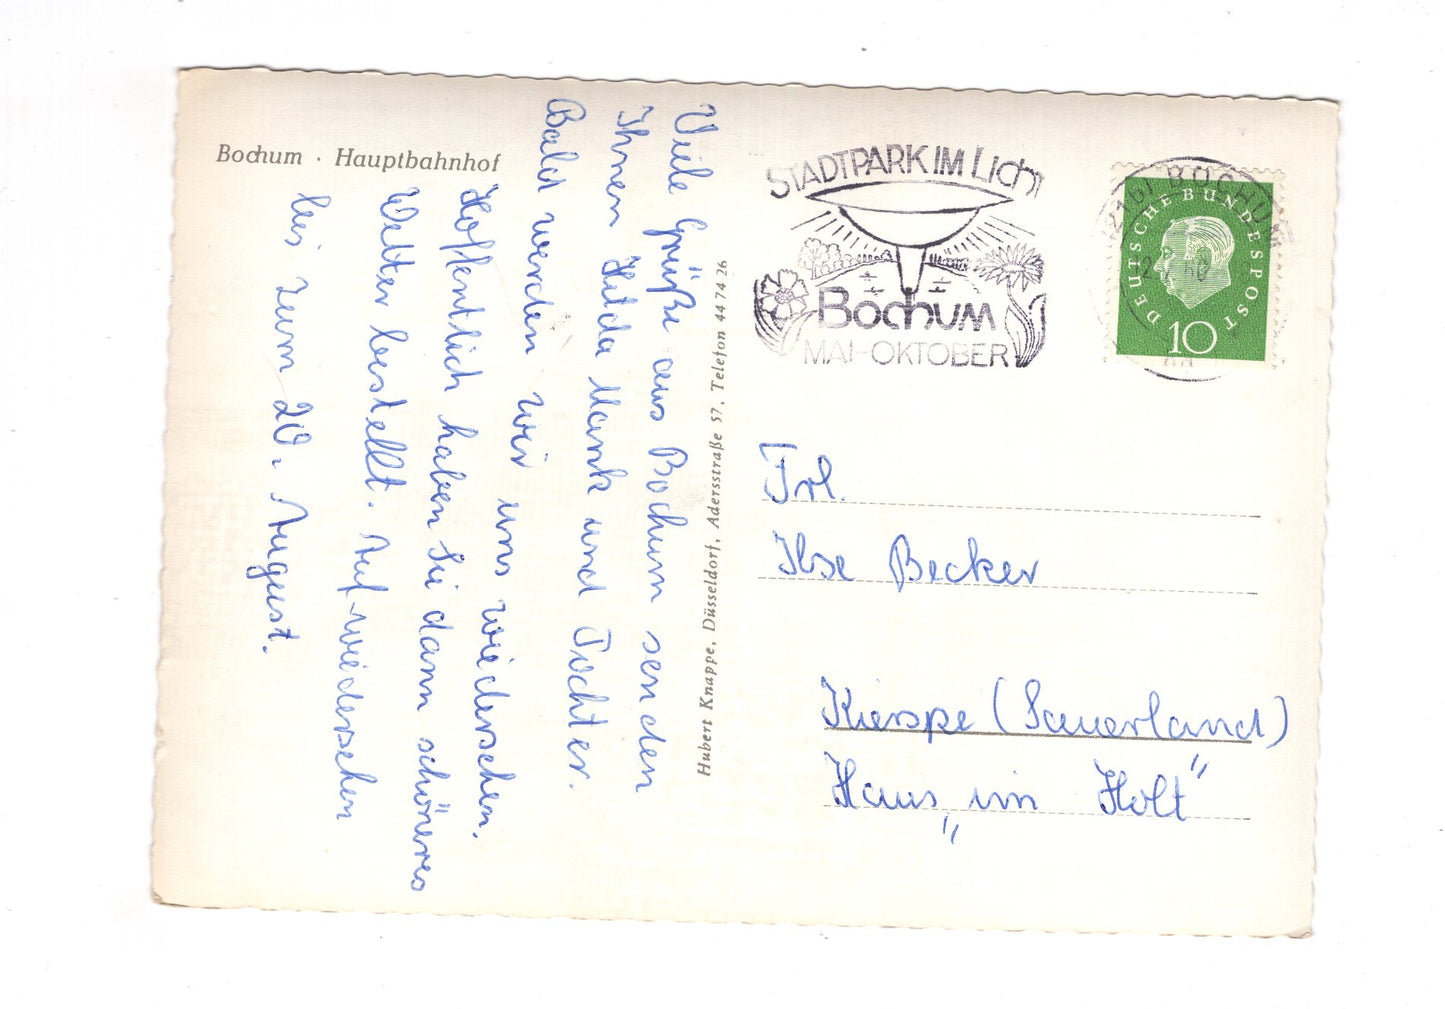 Bochum · Hauptbahnhof
Viele Grüße aus Bochum senden
Ihnen Hilda Mank und Tochter.
Bald werden wir uns wiedersehen.
Hoffentlich haben Sie dann schöneres
Wetter bestellt. Auf-wiedersehen
bis zum 20. August.
Hubert Knappe, Düsseldorf, Adersstraße 57, Telefon 44 74 26
STADTPARK IM Licht
BochuM
MAI-OKTOBER
BOCHUM
60
DEUTSCHE BUNDESPOST
10
Frl.
Ilse Becker
Kierspe (Sauerland)
Haus „im Holt"